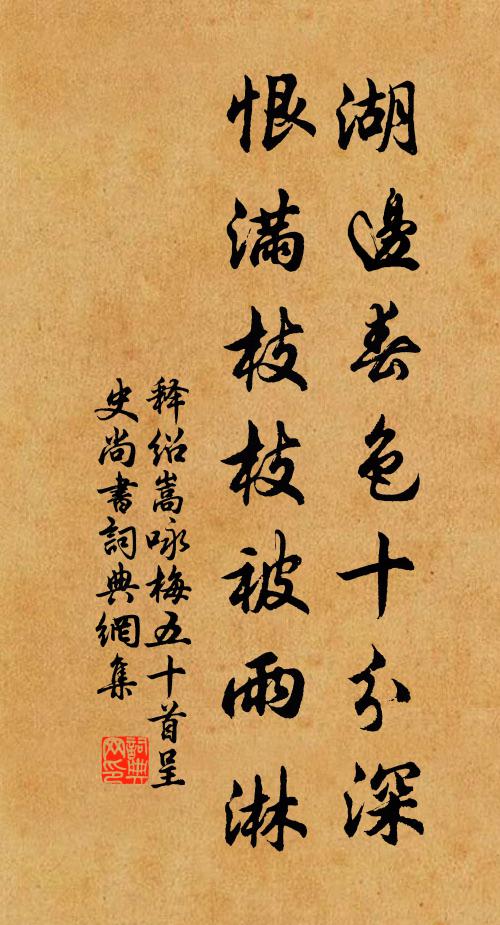 湖邊春色十分深
恨滿枝枝被雨淋
释绍嵩咏梅五十首呈
史尚書詞典網集
詞典網印